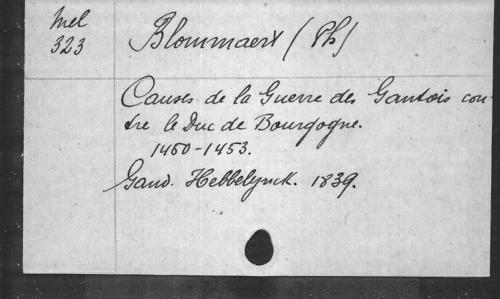 Mel
323
Blommaert (Ph)
Causes de la Guerre des Gantois con-
tre le Duc de Bourgogne.
1450-1453.
Gand. Hebbelynck. 1839.